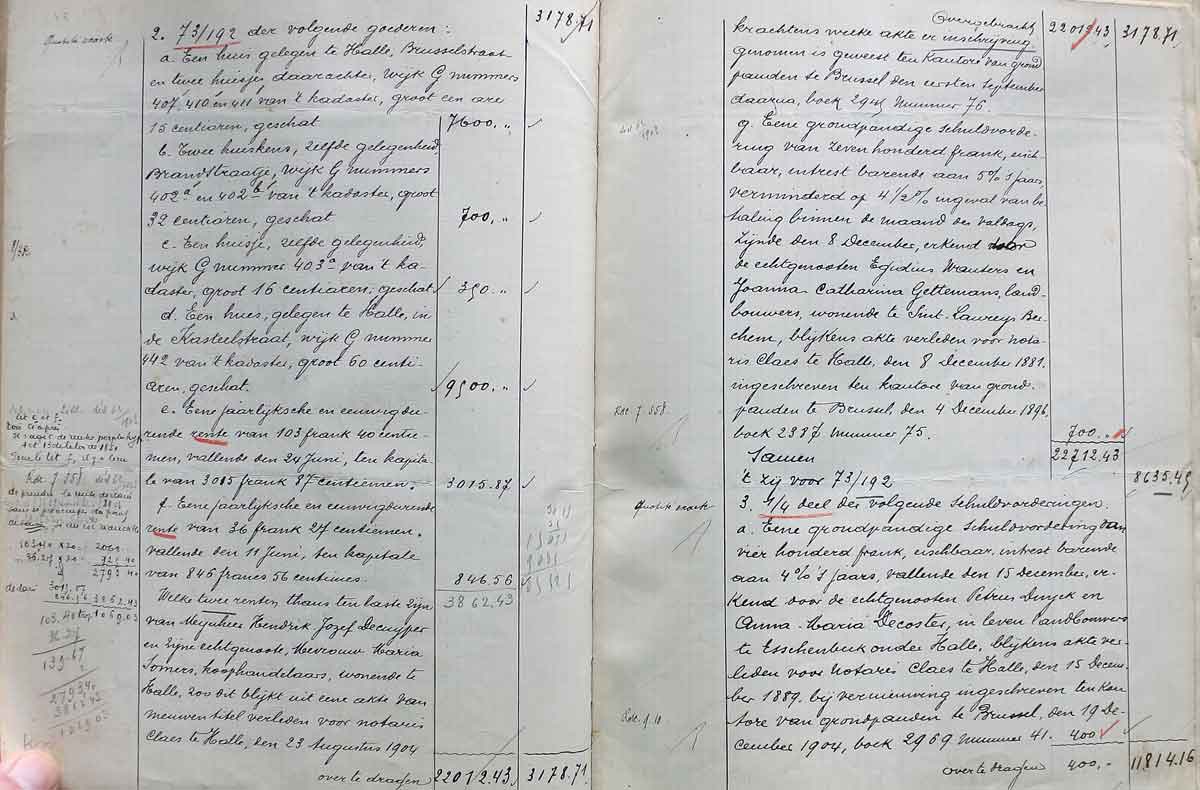 3178.71
2. 73/192 der volgende goederen:
a. Een huis gelegen te Halle, Brusselstraat
en twee huisjes daarachter, wijk G nummers
407, 410 en 411 van 't kadaster, groot een are
15 centiaren, geschat 7600.,,
b. Twee huiskens, zelfde gelegenheid,
Brandstraatje, wijk G nummers
402a en 402b van 't kadaster, groot
32 centiaren, geschat 700.,,
c. Een huisje, zelfde gelegenheid,
wijk G nummer 403a van 't ka-
daster, groot 16 centiaren, geschat 350.,,
d. Een huis, gelegen te Halle, in
de Kasteelstraat, wijk G nummer
442 van 't kadaster, groot 60 centi-
aren, geschat. 9500.,,
e. Eene jaarlijksche en eeuwigdu-
rende rente van 103 frank 40 centie-
men, vallende den 24 Juni, ten kapita-
le van 3015 frank 87 centiemen. 3015.87
f. Eene jaarlijksche en eeuwigdurende
rente van 36 frank 27 centiemen.
vallende den 11 Juni, ten kapitale
van 846 francs 56 centimes. 846 56
3862.43
Welke twee renten thans ten laste zijn
van Mijnheer Hendrik Jozef Decuyper
en zijne echtgenoote, Mevrouw Maria
Somers, koophandelaars, wonende te
Halle, zoo dit blijkt uit eene akte van
nieuwen titel verleden voor notaris
Claes te Halle, den 23 Augustus 1904
over te dragen 22012.43 3178.71
Overgebracht 22012.43 3178.71
krachtens welke akte er inschrijving
genomen is geweest ten kantore van grond
panden te Brussel den eersten September
daarna, boek 294 nummer 76
g. Eene grondpandige schuldvorde-
ring van zeven honderd frank, eisch-
baar, intrest barende aan 5% 's jaars,
verminderd op 4 1/2 % ingeval van be
taling binnen de maand des valdags,
zijnde den 8 December, erkend door
de echtgenoten Egidius Wauters en
Joanna Catharina Gettemans, land-
bouwers, wonende te Sint-Laureys-Ber-
chem, blijkens akte verleden voor nota-
ris Claes te Halle, den 8 December 1881.
ingeschreven ten kantore van grond-
panden te Brussel, den 4 December 1896,
boek 2387 nummer 75. 700.,,
Samen 22712.43
't zij voor 73/192 8635.45
3. 1/4 deel der volgende schuldvorderingen.
a. Eene grondpandige schuldvordering van
vier honderd frank, eischbaar, intrest barende
aan 4% 's jaars, vallende den 15 december, er-
kend door de echtgenoten Petrus
Anna-Maria Decoster, in leven landbouwers
te Esschenbeek onder Halle, blijkens akte ver-
leden voor Notaris Claes te Halle, den 15 Decem-
ber 1889, bij vernieuwing ingeschreven ten kan
tore van grondpanden te Brussel, den 19 De-
cember 1904, boek 2969 nummer 41. 400
over te dragen 400.- 11814.16